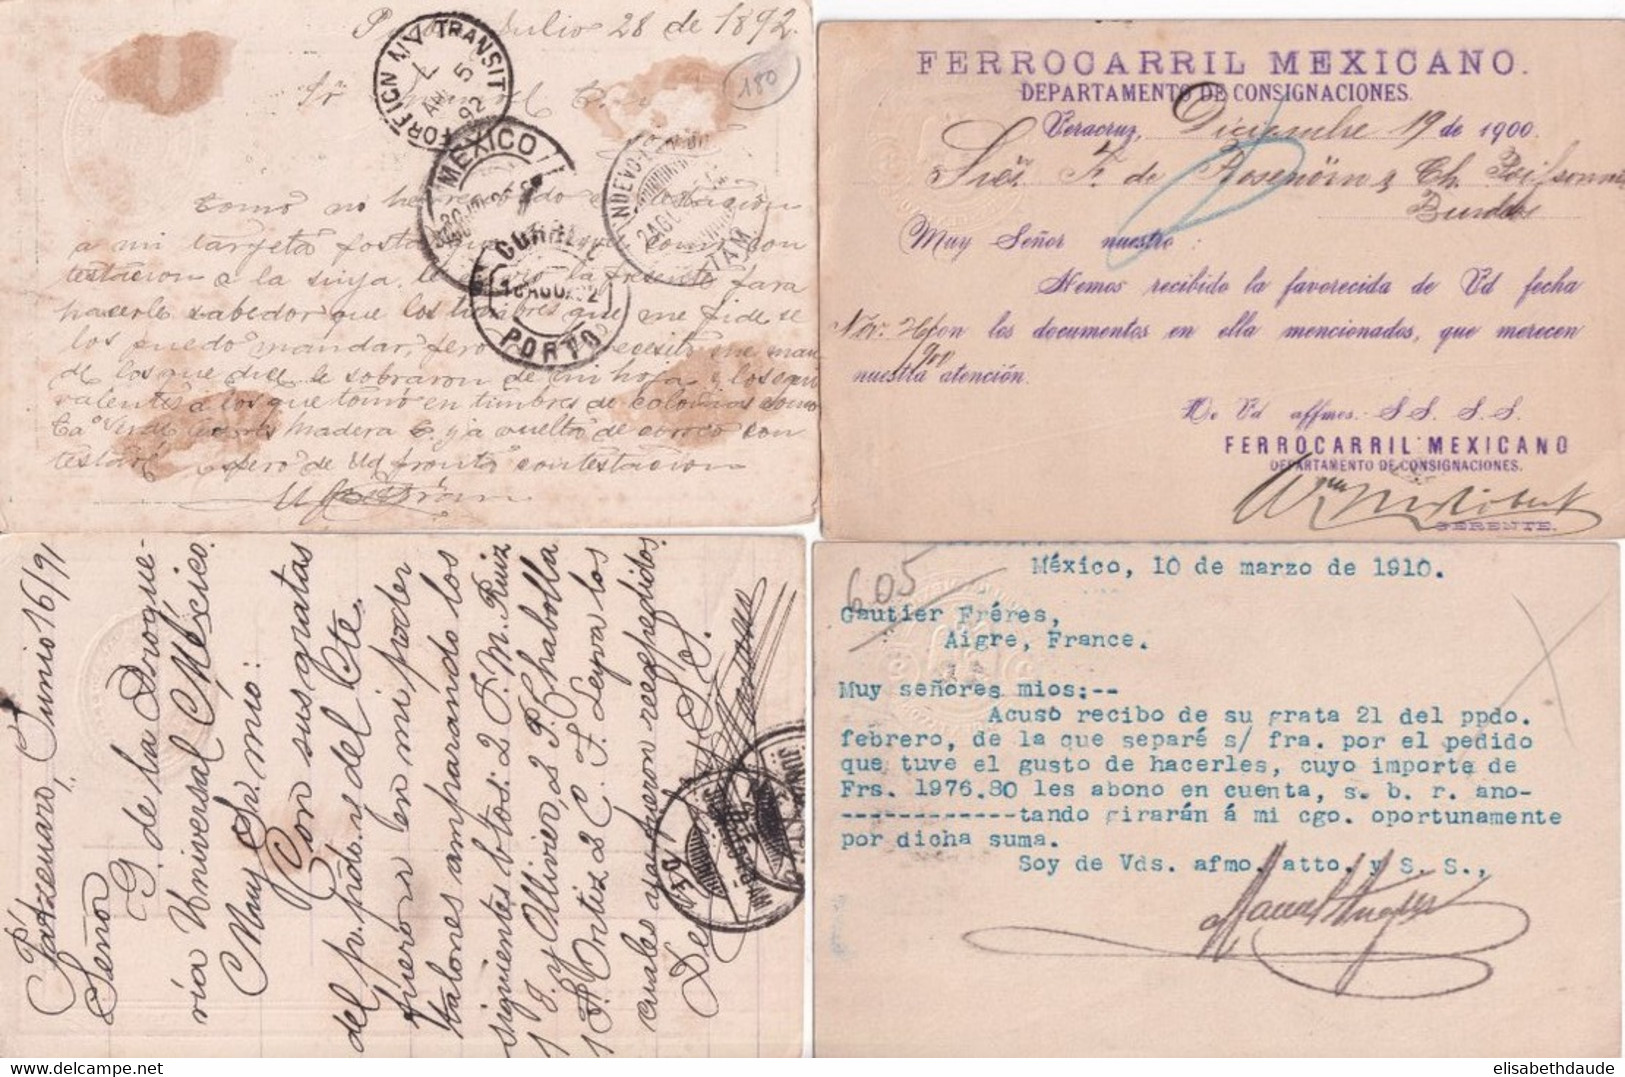 Julio 28 de 1892.
180
FOREIGN N.Y. TRANSIT
5
92
MEXICO
NUEVO
2 AGO
TAM
16 AGO 92
PORTO
Como no he recibido contestacion
a mi targeta postal que
testacion a la suya, le envio la presente para
hacerle sabedor que los timbres que me pide se
los puedo mandar, pero necesito me man
de los que dice le sobraron de mi hoja y los equi
valentes a los que tomó en timbres de colonias como
Ca. Verde Madera &. y a vuelta de correo con
testaré espero de Ud pronta contestacion
FERROCARRIL MEXICANO.
DEPARTAMENTO DE CONSIGNACIONES.
Veracruz, Diciembre 19 de 1900.
Sres. F. de Rosenörn & Ch. Poissonnie
Burdeos
Muy Señor nuestro:
Hemos recibido la favorecida de Vd fecha
Nov. con los documentos en ella mencionados, que merecen
1900
nuestra atención.
De Vd affmos. S S. S. S.
FERROCARRIL MEXICANO
DEPARTAMENTO DE CONSIGNACIONES.
GERENTE.
Pátzcuaro, Junio 16/91
Señor
G. de la Drogue-
ría Universal México.
Muy Sr. mío:
Con sus gratas
del p. pdo. y del Cte.
fueron en mi poder
talones amparando los
siguientes btos: 2 T. M. Ruiz
1 J. y Ollivier, 2 P. Chabolla
1 A. Ortiz 2 C. F. Leyva los
cuales ya fueron reespedidos.
De Ud. S. S.
605
México, 10 de marzo de 1910.
Gautier Fréres,
Aigre, France.
Muy señores mios:--
Acuso recibo de su grata 21 del ppdo.
febrero, de la que separé s/ fra. por el pedido
que tuve el gusto de hacerles, cuyo importe de
Frs. 1976.80 les abono en cuenta, s. b. r. ano-
------------tando girarán á mi cgo. oportunamente
por dicha suma.
Soy de Vds. afmo. atto. y S. S.,
elisabethdaude